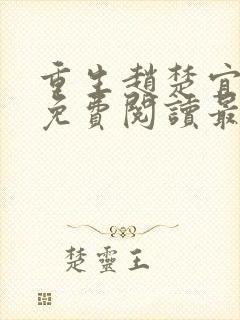 重生趙楚宜
免費閱讀最
楚靈王